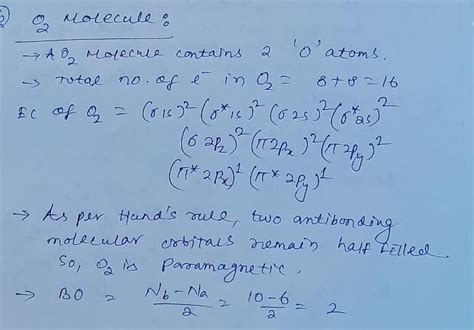 ② O₂ Molecule :
→ A O₂ Molecule contains 2 'O' atoms.
→ Total no. of e⁻ in O₂ = 8+8 = 16
EC of O₂ = (σ1s)² (σ*1s)² (σ2s)² (σ*2s)²
(σ2p_z)² (π2p_x)² (π2p_y)²
(π*2p_x)¹ (π*2p_y)¹
→ As per Hund's rule, two antibonding
molecular orbitals remain half filled.
So, O₂ is Paramagnetic.
→ BO = (N_b - N_a)/2 = (10-6)/2 = 2